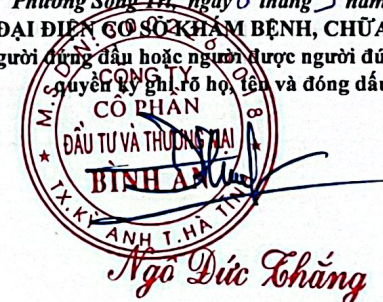 Phường Sông Trí, ngày tháng năm
ĐẠI DIỆN CƠ SỞ KHÁM BỆNH, CHỮA
người đứng đầu hoặc người được người đứ
quyền ký ghi rõ họ, tên và đóng dấu
M.S.D.N:
CÔNG TY
CỔ PHẦN
ĐẦU TƯ VÀ THƯƠNG MẠI
BÌNH AN
TX.KỲ ANH T.HÀ TĨNH
Ngô Đức Thắng